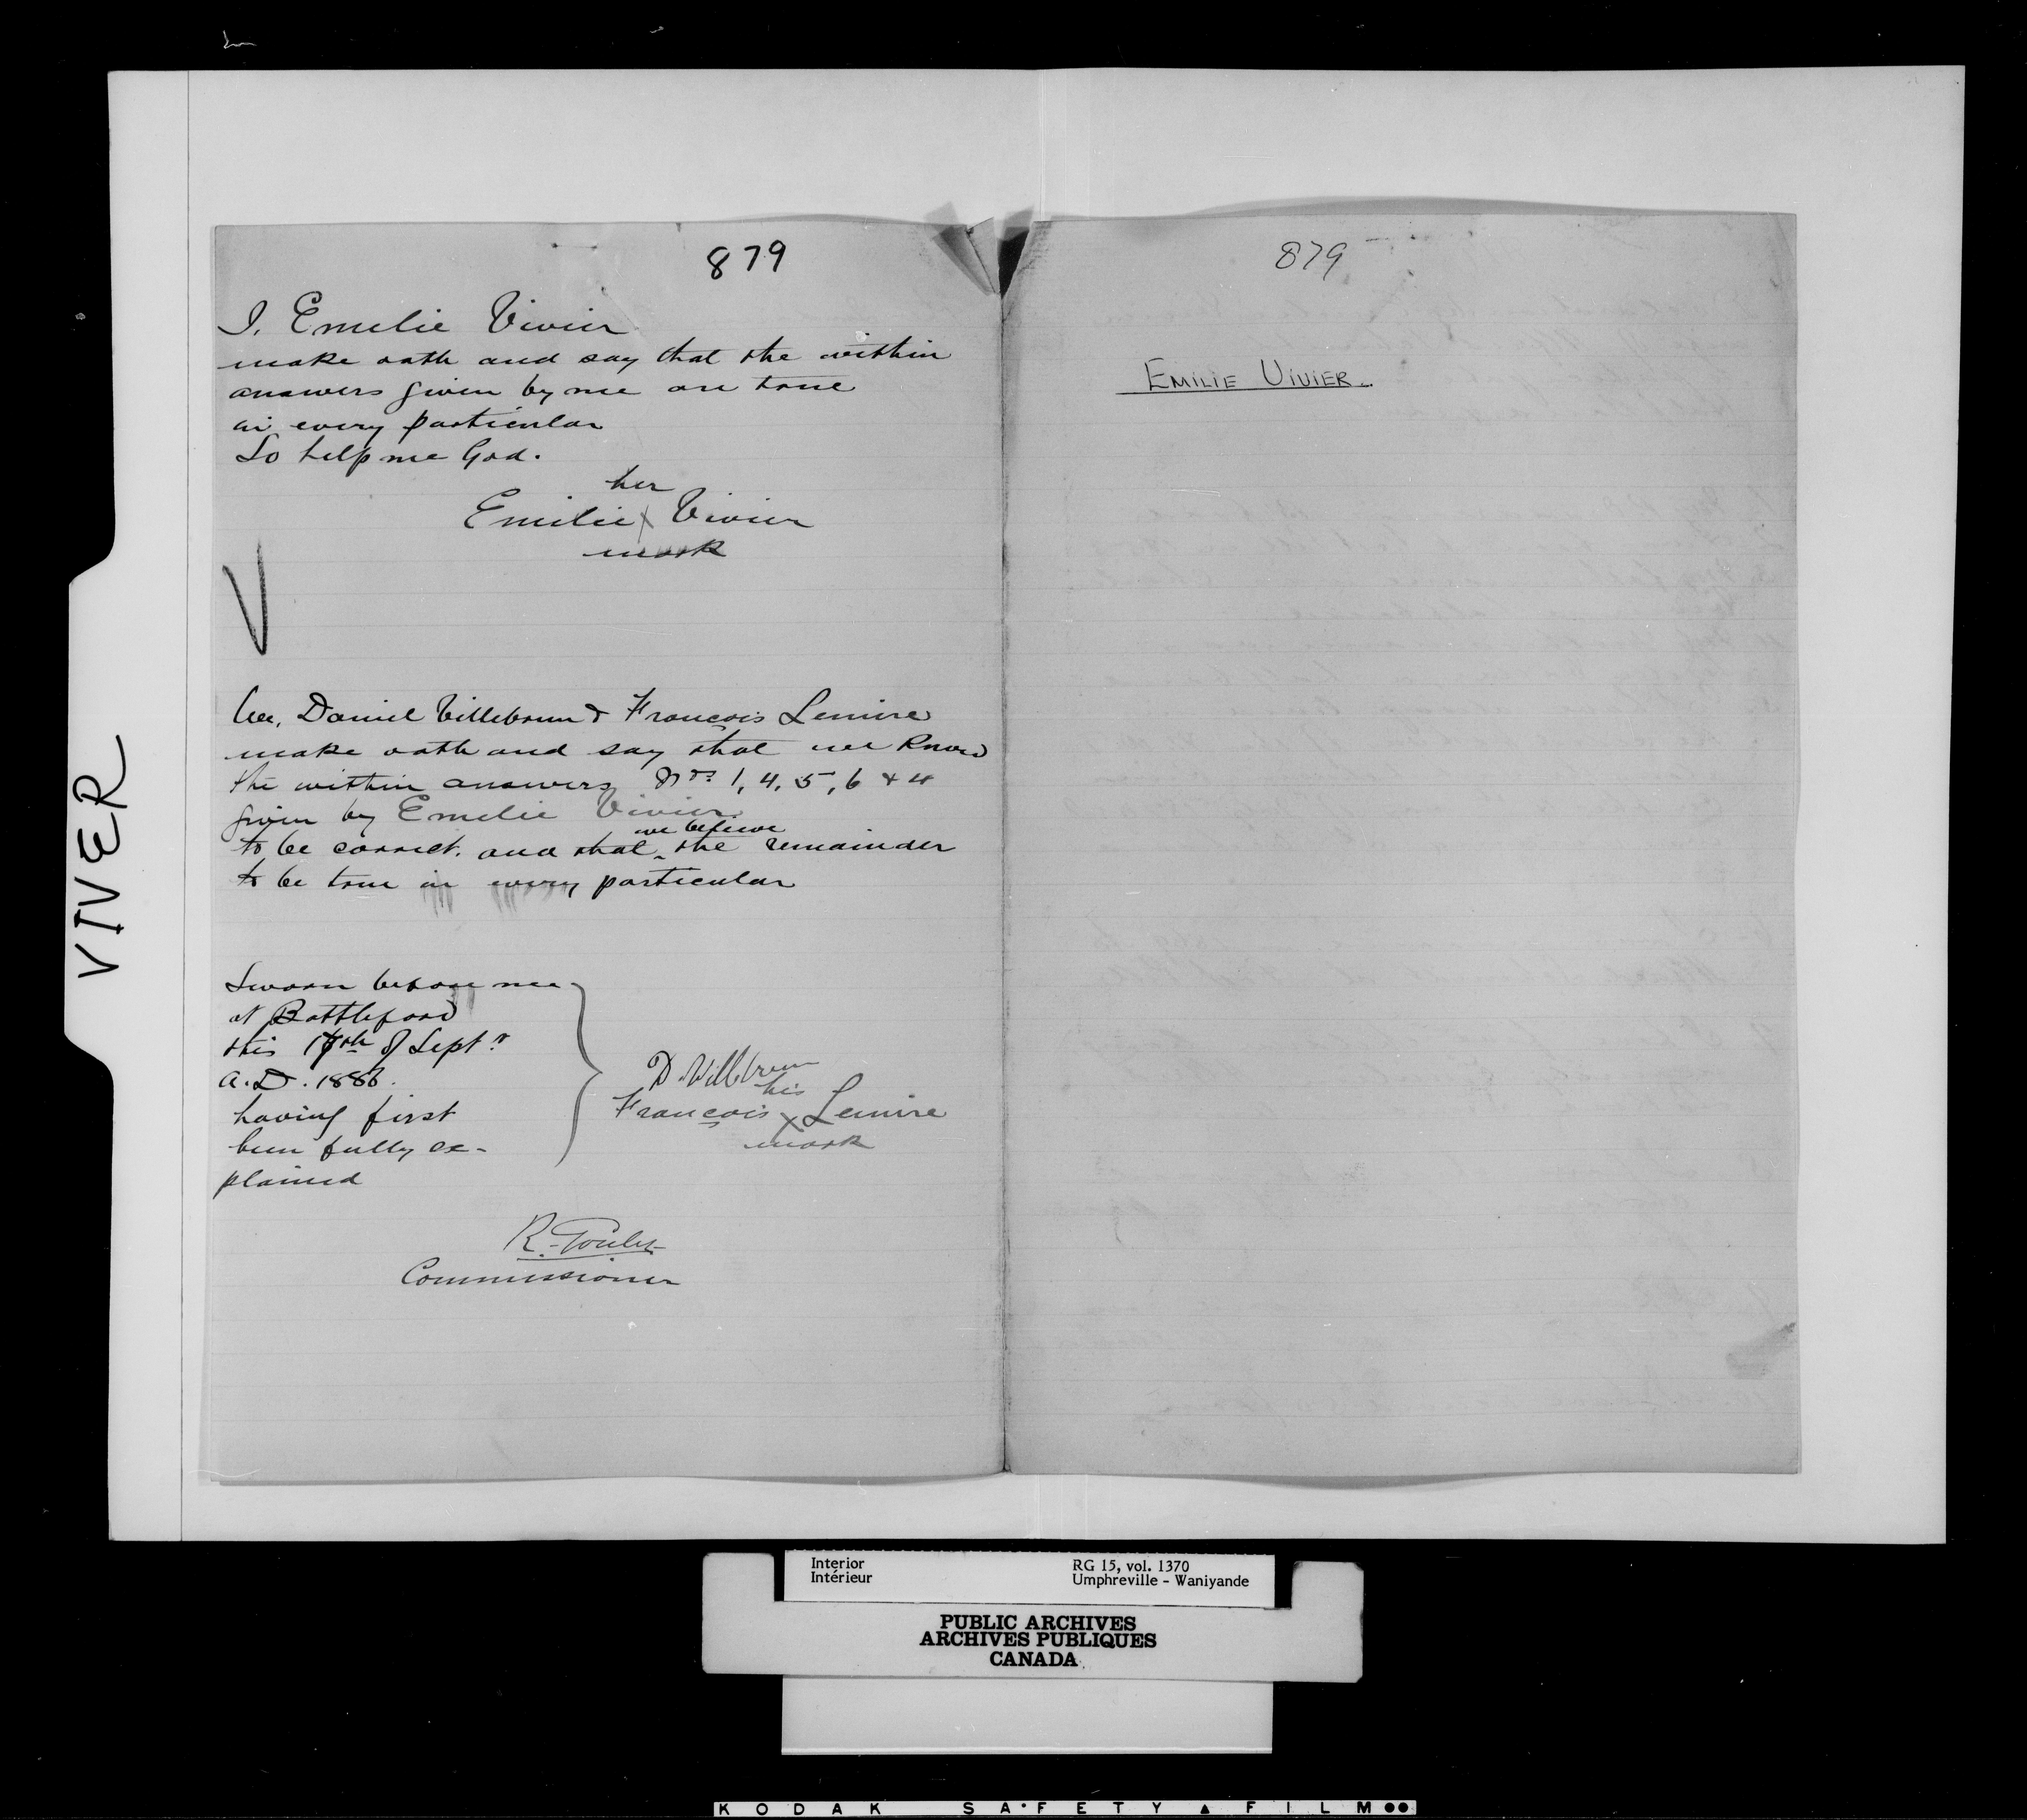 879
I, Emelie Vivier
make oath and say that the within
answers given by me are true
in every particular
So help me God.
her
Emilie X Vivier
mark
We, Daniel Villebrun & François Lemire
make oath and say that we know
the within answers Nos 1, 4, 5, 6 & 11
given by Emelie Vivier
we believe
to be correct. and that ‸ the remainder
to be true in every particular
Sworn before me
at Battleford
this th of Septr
A.D. 1886.
having first
been fully ex-
plained
D. Villebrun
his
François X Lemire
mark
R. Goulet
Commissioner
879
EMILIE VIVIER.
VIVER
Interior
Intérieur
RG 15, vol. 1370
Umphreville - Waniyande
PUBLIC ARCHIVES
ARCHIVES PUBLIQUES
CANADA
KODAK SAFETY ▲ FILM ●●